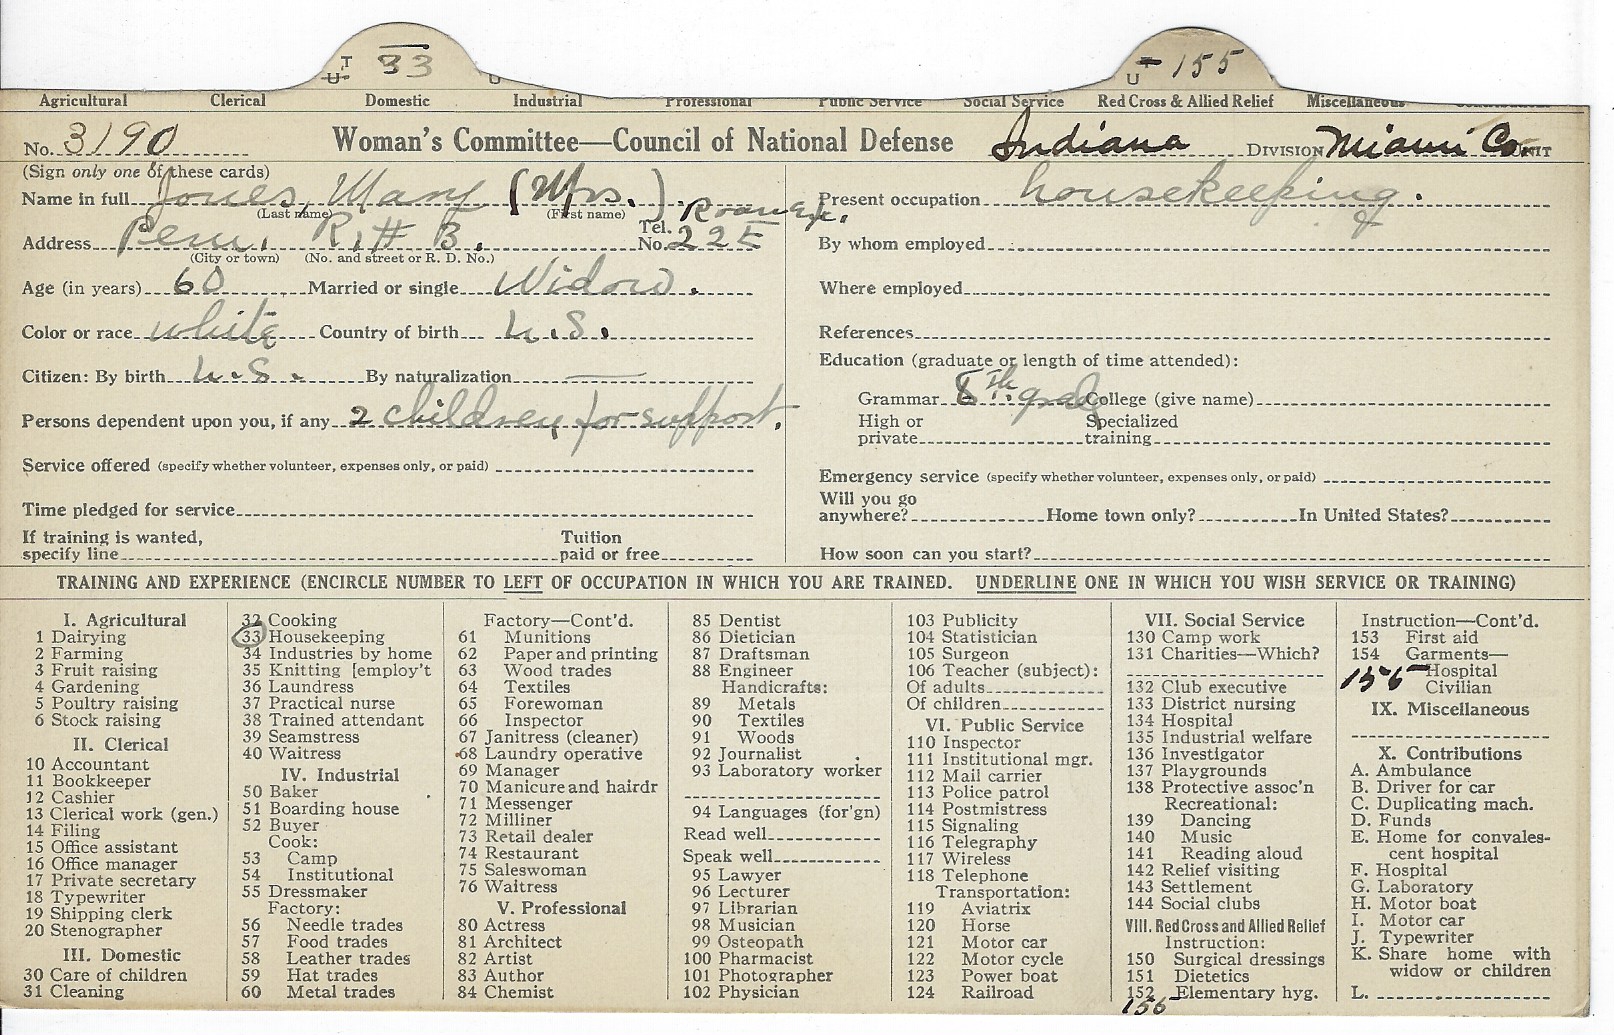 T 33
U
T 155
U
Agricultural Clerical Domestic Industrial Professional Public Service Social Service Red Cross & Allied Relief Miscellaneous
No. 3190 Woman's Committee—Council of National Defense Indiana DIVISION Miami Co. UNIT
(Sign only one of these cards)
Name in full Jones, Mary (Mrs.)
(Last name) (First name)
Address Peru, R.# 3. Tel. No. 225
(City or town) (No. and street or R. D. No.)
Age (in years) 60 Married or single Widow.
Color or race white Country of birth U.S.
Citizen: By birth U.S. By naturalization —
Persons dependent upon you, if any 2 children for support.
Service offered (specify whether volunteer, expenses only, or paid)
Time pledged for service
If training is wanted, specify line Tuition paid or free
Present occupation housekeeping.
By whom employed
Where employed
References
Education (graduate or length of time attended):
Grammar 8th. grade College (give name)
High or private Specialized training
Emergency service (specify whether volunteer, expenses only, or paid)
Will you go anywhere? Home town only? In United States?
How soon can you start?
TRAINING AND EXPERIENCE (ENCIRCLE NUMBER TO LEFT OF OCCUPATION IN WHICH YOU ARE TRAINED. UNDERLINE ONE IN WHICH YOU WISH SERVICE OR TRAINING)
I. Agricultural
1 Dairying
2 Farming
3 Fruit raising
4 Gardening
5 Poultry raising
6 Stock raising
II. Clerical
10 Accountant
11 Bookkeeper
12 Cashier
13 Clerical work (gen.)
14 Filing
15 Office assistant
16 Office manager
17 Private secretary
18 Typewriter
19 Shipping clerk
20 Stenographer
III. Domestic
30 Care of children
31 Cleaning
32 Cooking
33 Housekeeping
34 Industries by home
35 Knitting [employ't
36 Laundress
37 Practical nurse
38 Trained attendant
39 Seamstress
40 Waitress
IV. Industrial
50 Baker
51 Boarding house
52 Buyer
Cook:
53 Camp
54 Institutional
55 Dressmaker
Factory:
56 Needle trades
57 Food trades
58 Leather trades
59 Hat trades
60 Metal trades
Factory—Cont'd.
61 Munitions
62 Paper and printing
63 Wood trades
64 Textiles
65 Forewoman
66 Inspector
67 Janitress (cleaner)
68 Laundry operative
69 Manager
70 Manicure and hairdr
71 Messenger
72 Milliner
73 Retail dealer
74 Restaurant
75 Saleswoman
76 Waitress
V. Professional
80 Actress
81 Architect
82 Artist
83 Author
84 Chemist
85 Dentist
86 Dietician
87 Draftsman
88 Engineer
Handicrafts:
89 Metals
90 Textiles
91 Woods
92 Journalist
93 Laboratory worker
94 Languages (for'gn)
Read well
Speak well
95 Lawyer
96 Lecturer
97 Librarian
98 Musician
99 Osteopath
100 Pharmacist
101 Photographer
102 Physician
103 Publicity
104 Statistician
105 Surgeon
106 Teacher (subject):
Of adults
Of children
VI. Public Service
110 Inspector
111 Institutional mgr.
112 Mail carrier
113 Police patrol
114 Postmistress
115 Signaling
116 Telegraphy
117 Wireless
118 Telephone
Transportation:
119 Aviatrix
120 Horse
121 Motor car
122 Motor cycle
123 Power boat
124 Railroad
VII. Social Service
130 Camp work
131 Charities—Which?
132 Club executive
133 District nursing
134 Hospital
135 Industrial welfare
136 Investigator
137 Playgrounds
138 Protective assoc'n
Recreational:
139 Dancing
140 Music
141 Reading aloud
142 Relief visiting
143 Settlement
144 Social clubs
VIII. Red Cross and Allied Relief
Instruction:
150 Surgical dressings
151 Dietetics
152 Elementary hyg.
155
Instruction—Cont'd.
153 First aid
154 Garments—
155 Hospital
Civilian
IX. Miscellaneous
X. Contributions
A. Ambulance
B. Driver for car
C. Duplicating mach.
D. Funds
E. Home for convales-
cent hospital
F. Hospital
G. Laboratory
H. Motor boat
I. Motor car
J. Typewriter
K. Share home with
widow or children
L.